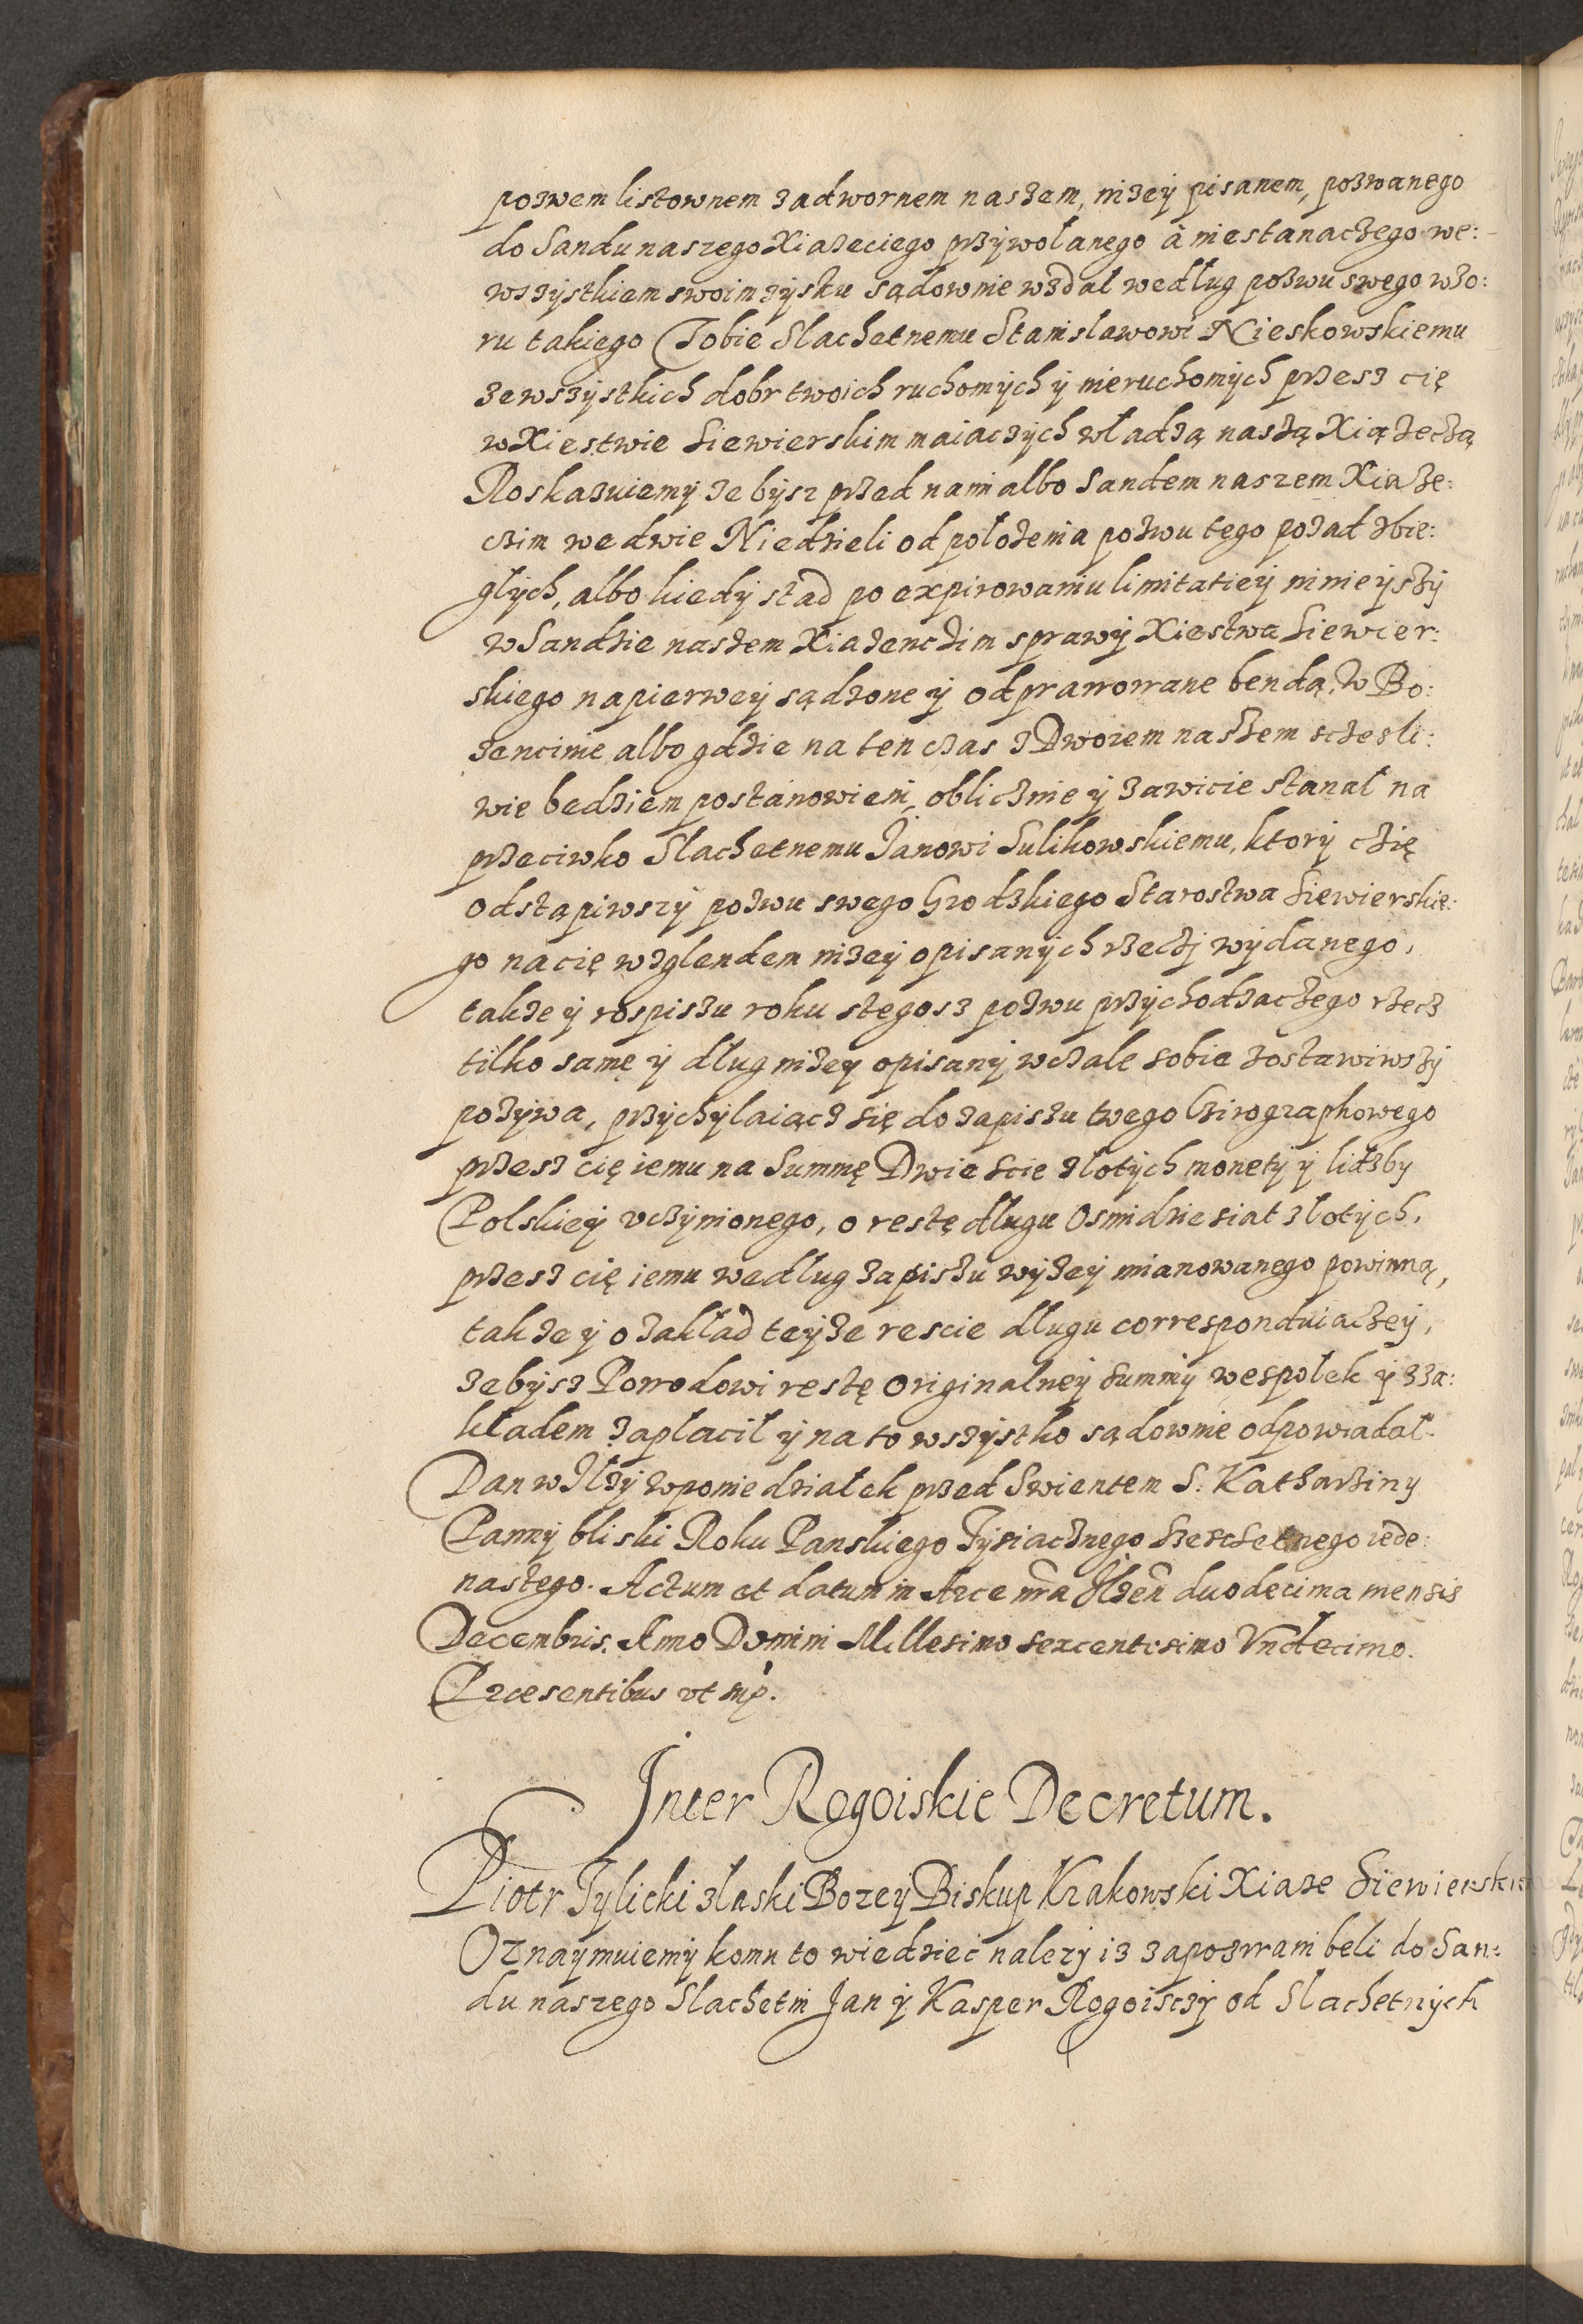 pozwem listownem zadwornem naszem, nizeÿ pisanem, pozwanego
do Sandu naszego Xiazeciego przÿwołanego á niestanaczego we:
wszÿstkiem swoim zÿsku sądownie wzdał według pozwu swego wzo:
ru takiego Tobie Slachetnemu Stanislawowi Nieskowskiemu
ze wszÿstkich dobr twoich ruchomÿch ÿ nieruchomÿch przesz cię
w Xięstwie Siewierskim maiaczÿch władzą naszą Xiązeczą
Roskazuiemÿ ze bÿsz przed nami albo Sandem naszem Xiaze:
czim we dwie Niedzieli od połozenia pozwu tego pozad zbie:
głÿch, albo kiedÿ stad po expirowaniu limitatieÿ ninieÿszÿ
w Sandzie naszem Xiazenczim sprawÿ Xiestwa Siewier:
skiego napierweÿ sądzone ÿ odprawowane bendą, w Bo:
zencinie albo gdzie na ten czas z Dworem naszem sczesli:
wie bedziem postanowieni, oblicznie ÿ zawicie stanał na
przeciwko Slachetnemu Janowi Sulikowskiemu, ktorÿ czię
odstąpiwszÿ pozwu swego Grodzkiego Starostwa Siewierskie:
go na cię wzglendem nizeÿ opisanÿch rzeczÿ wÿdanego,
takze ÿ rospiszu roku stegosz pozwu przÿchodzaczego rzecz
tilko samę ÿ dług nizeÿ opisanÿ wczale sobie zostawiwszÿ
pozÿwa, przÿchÿlaiącz się do zapiszu twego Czirographowego
przesz cię iemu na Summę Dwie scie złotÿch monetÿ ÿ liczbÿ
Polskieÿ vczÿnionego, o restę długu Osmidziesiat złotÿch,
przesz cię iemu według zapiszu wÿzeÿ mianowanego powinną,
takze ÿ o zakład teÿze rescie długu correspondniaczeÿ,
zebÿsz Powodowi restę Originalneÿ summÿ wespołek ÿ zza:
kładem zapłacił ÿ na to wszÿstko sądownie odpowiadał.
Dan w Ilzÿ w poniedziałek przed Swientem S. Katharzinÿ
Pannÿ bliski Roku Panskiego Tÿsiacznego Szesczetnego iede:
nastego. Actum et datum in Arce nra Ilzen duodecima mensis
Decembris. Anno Domini Millesimo sexcentisimo Vndecimo.
Præsentibus vt sup.
Inter Rogoiskie Decretum.
Piotr Tÿlicki złaski Bozeÿ Biskup Krakowski Xiaze Siewierski
Oznaÿmuiemÿ komu to wiedziec nalezÿ isz zapozwani beli do San:
du naszego Slachetni Jan ÿ Kasper Rogoisczÿ od Slachetnÿch